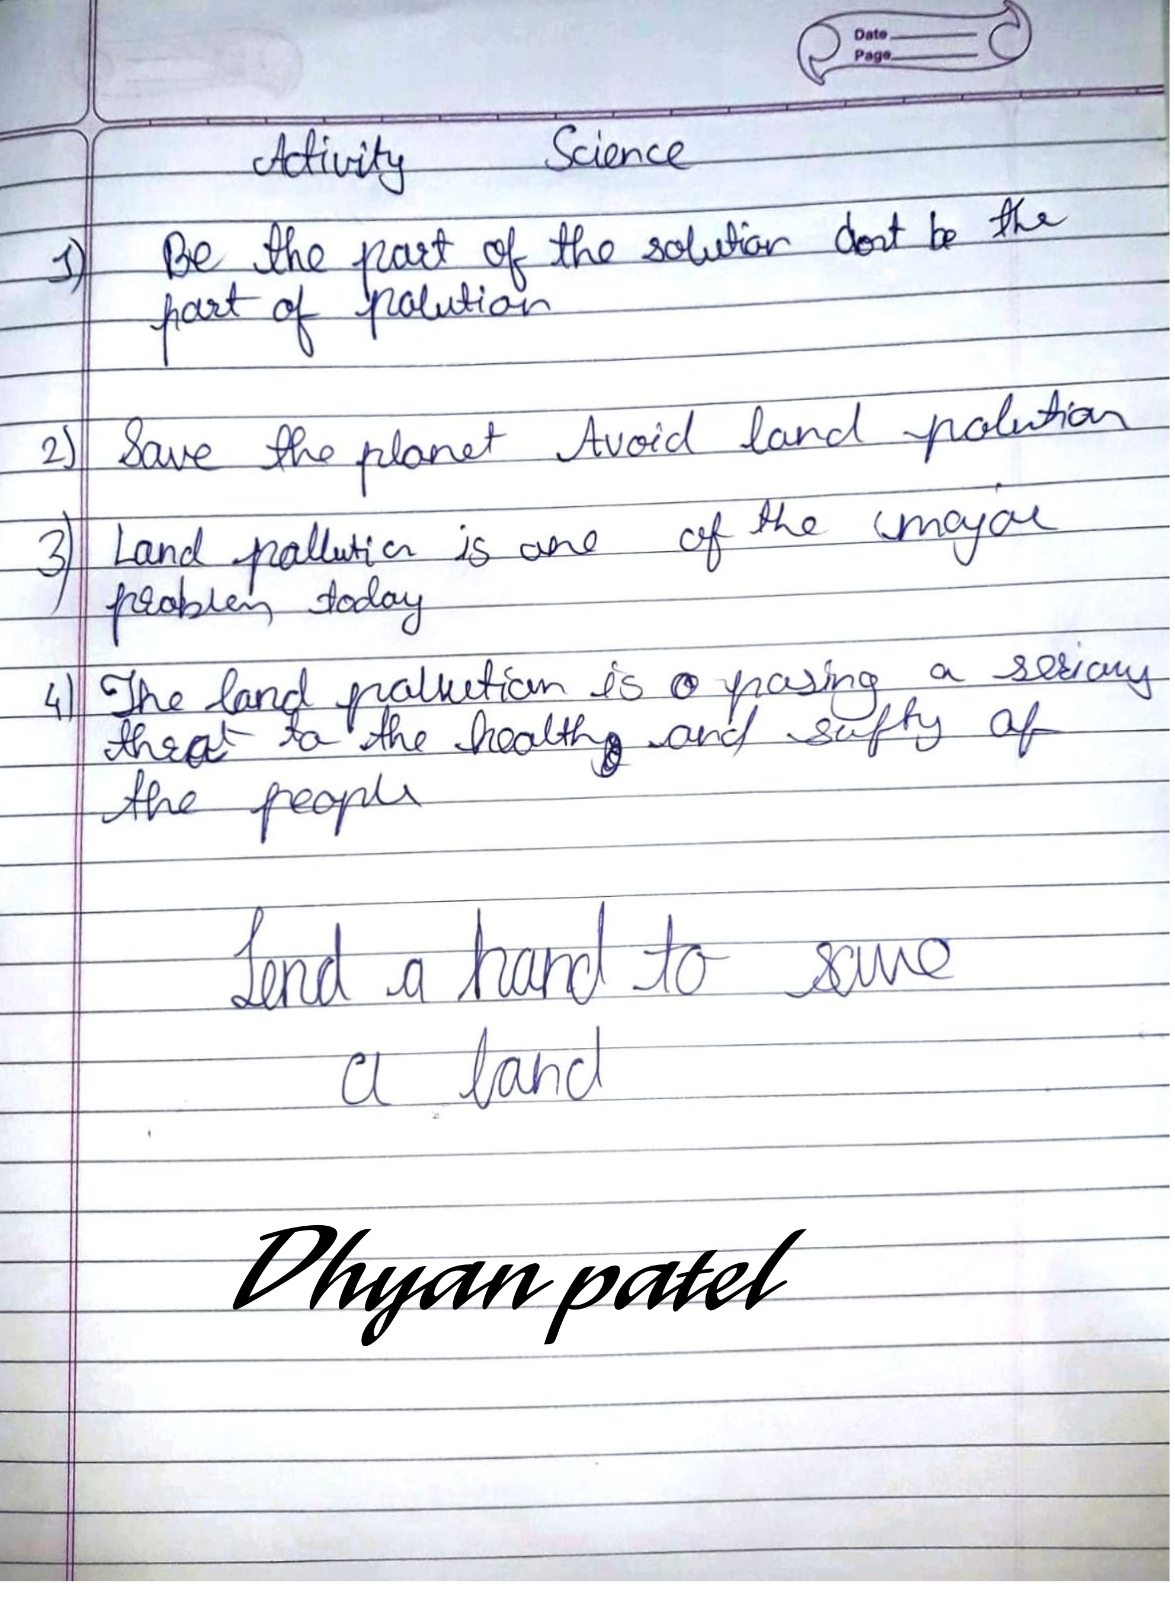 Date
Page
Activity Science
1) Be the part of the solution dont be the
part of polution
2) Save the planet Avoid land polution
3) Land pollution is one of the major
problem today
4) The land pollution is posing a serious
threat to the health and safty of
the people
Lend a hand to save
a land
Dhyan patel